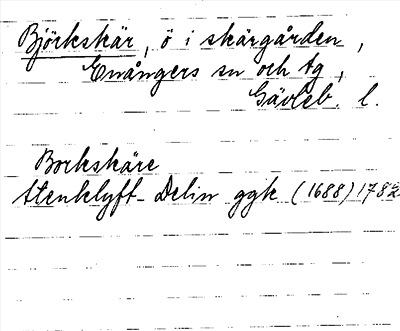 Björkskär, ö i skärgården,
Enångers sn och tg,
Gävleb. l.
Borkskäre
Stenklyft - Delin ggk (1688) 1782